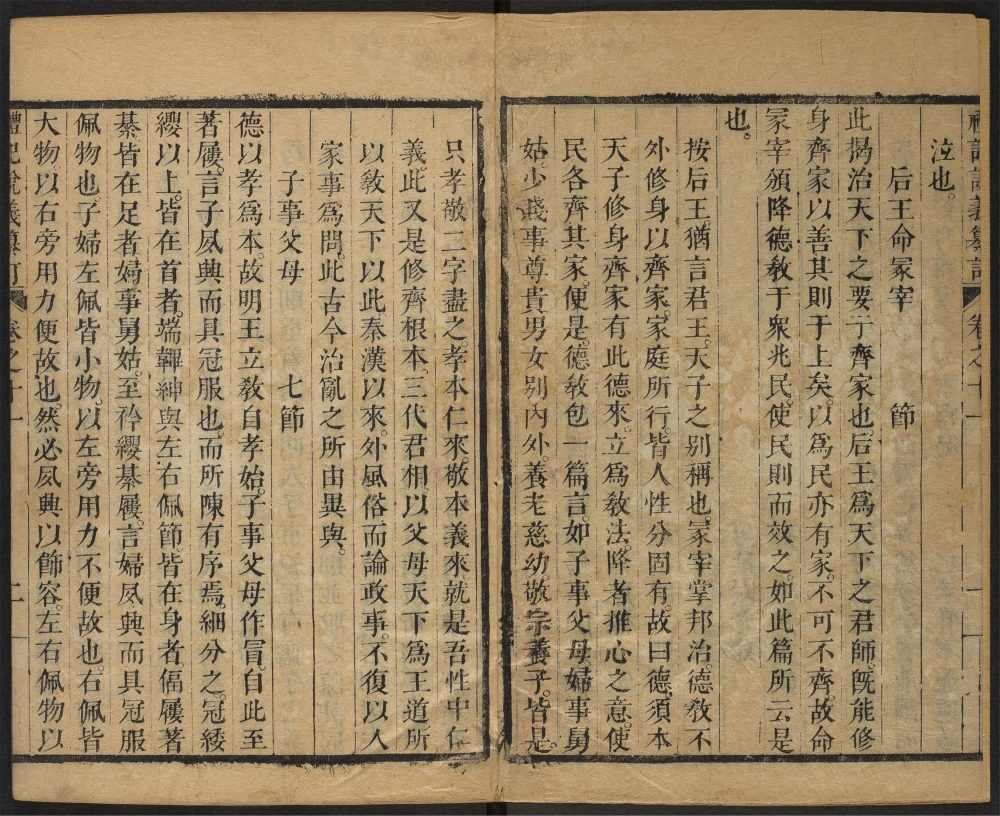 禮記說義纂訂 卷之十一
泣也。
后王命冡宰 節
此揭治天下之要于齊家也。后王爲天下之君師。旣能修
身齊家以善其則于上矣。以爲民亦有家。不可不齊。故命
冡宰頒降德敎于衆兆民。使民則而效之。如此篇所云是
也。
按后王。猶言君王。天子之别稱也。冡宰掌邦治。德敎不
外修身以齊家。家庭所行。皆人性分固有。故曰德。須本
天子修身齊家有此德來。立爲敎法。降者推心之意。使
民各齊其家。便是。德敎包一篇言。如子事父母。婦事舅
姑。少賤事尊貴。男女别內外。養老慈幼。敬宗養子。皆是。
只孝敬二字盡之。孝本仁來。敬本義來。就是吾性中仁
義。此又是修齊根本。三代君相以父母天下爲王道。所
以敎天下以此。秦漢以來。外風俗而論政事。不復以人
家事爲問。此古今治亂之所由異與。
子事父母 七節
德以孝爲本。故明王立敎自孝始。子事父母作冒。自此至
著屨。言子夙興而具冠服也。而所陳有序焉。細分之。冠緌
纓以上。皆在首者。端韠紳與左右佩節。皆在身者。偪屨著
綦皆在足者。婦事舅姑。至衿纓綦屨。言婦夙興而具冠服
佩物也。子婦左佩皆小物。以左旁用力不便故也。右佩皆
大物。以右旁用力便故也。然必夙興以飾容。左右佩物以
禮記說義纂訂 卷之十一 二